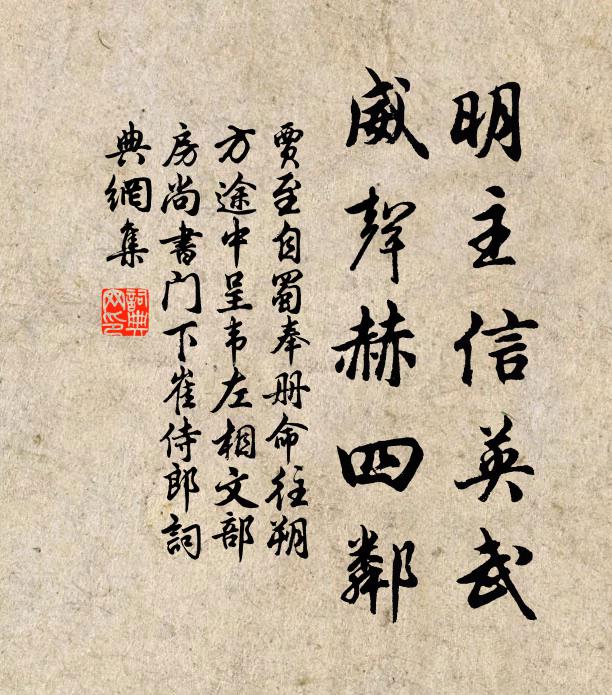 明主信英武
威聲赫四鄰
賈至自蜀奉册命往朔
方途中呈韦左相文部
房尚書门下崔侍郎詞
典網集
詞典
网印